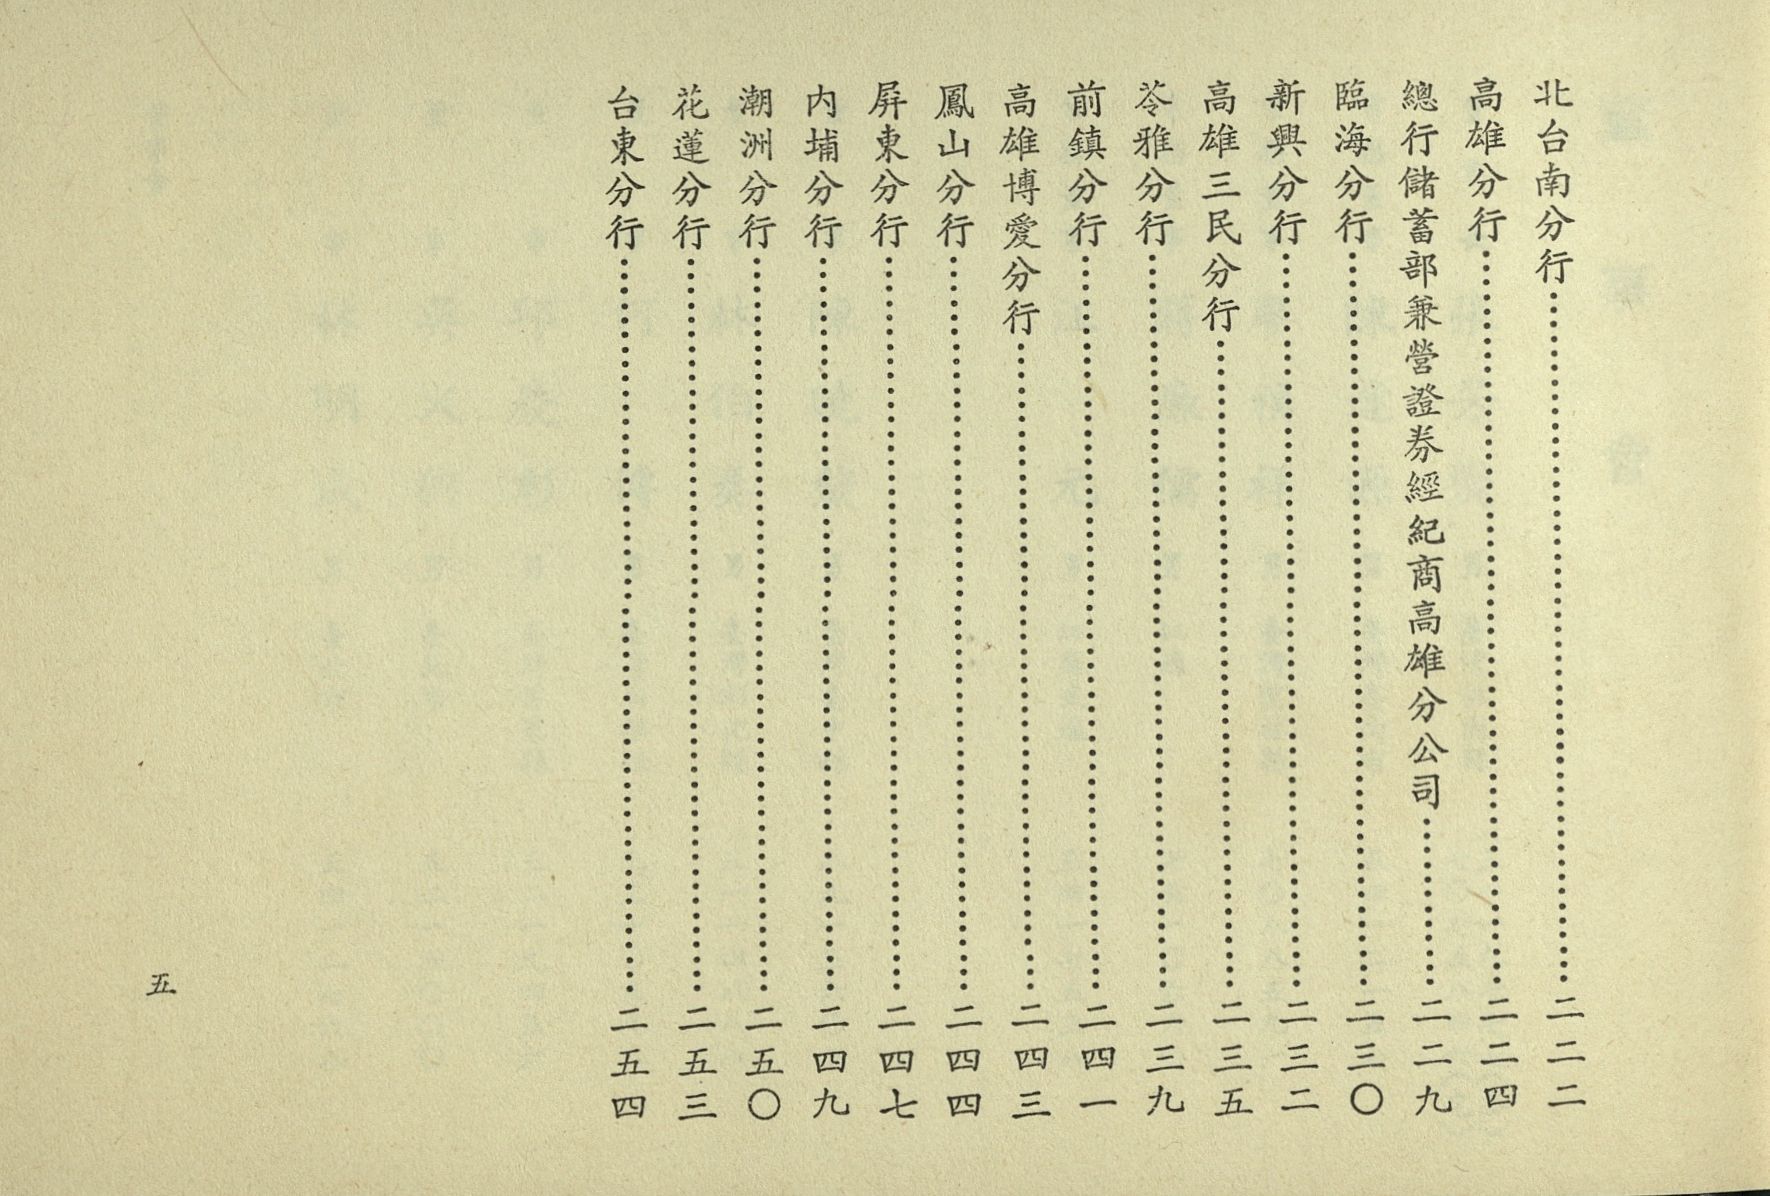 北台南分行……………………二二二
高雄分行……………………二二四
總行儲蓄部兼營證券經紀商高雄分公司……………………二二九
臨海分行……………………二三〇
新興分行……………………二三二
高雄三民分行……………………二三五
苓雅分行……………………二三九
前鎮分行……………………二四一
高雄博愛分行……………………二四三
鳳山分行……………………二四四
屏東分行……………………二四七
內埔分行……………………二四九
潮洲分行……………………二五〇
花蓮分行……………………二五三
台東分行……………………二五四
五